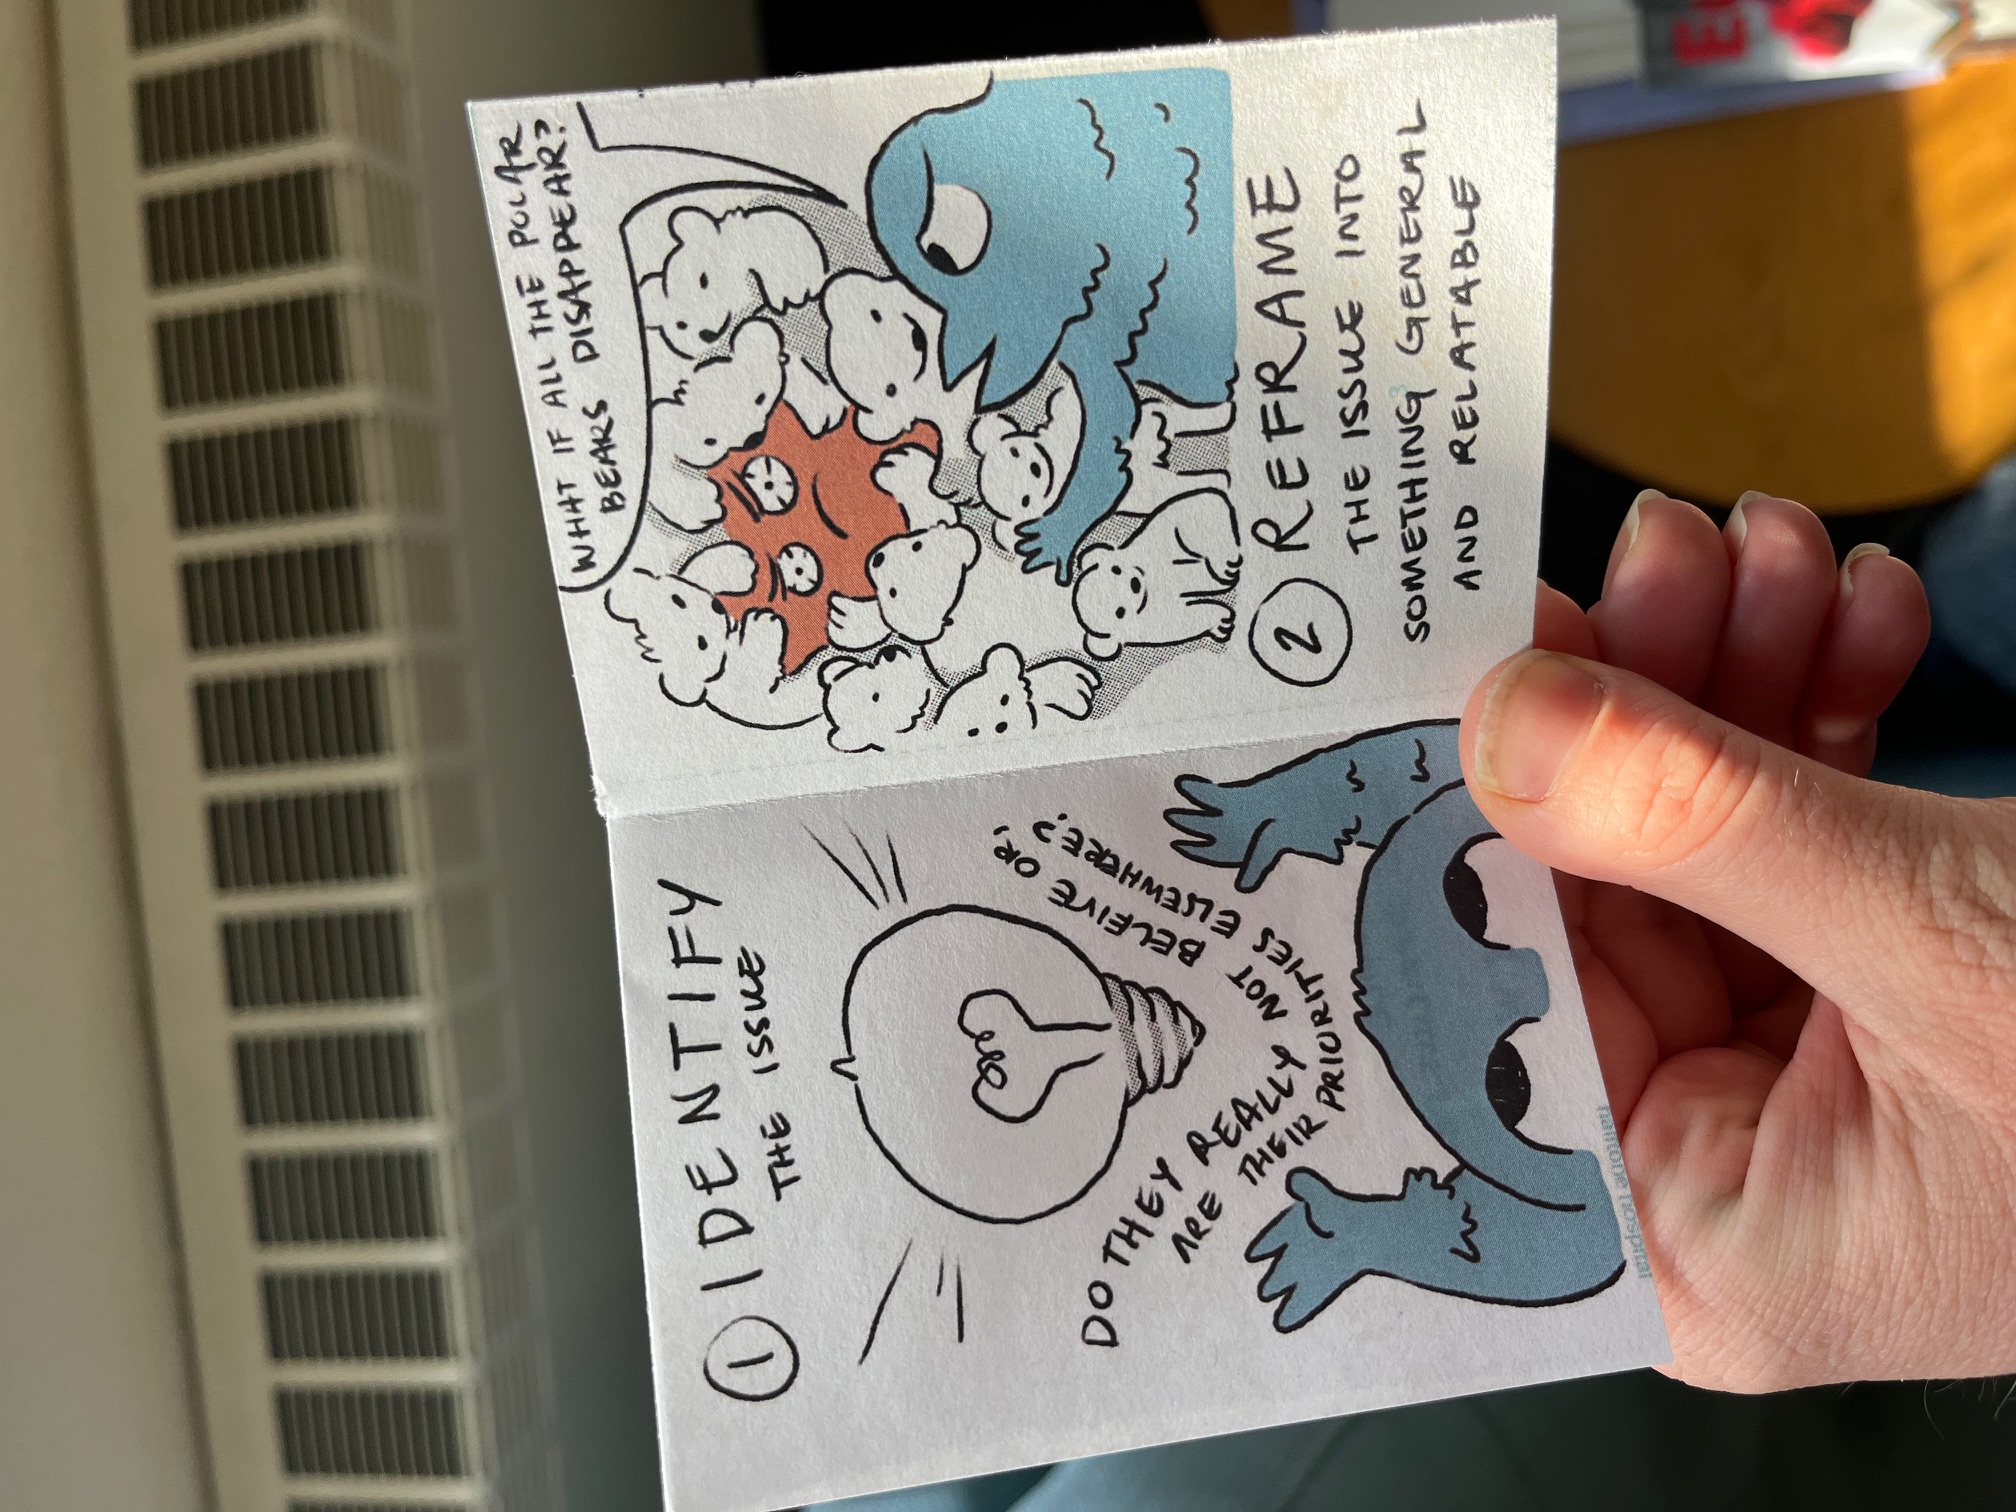 1 IDENTIFY
THE ISSUE
DO THEY REALLY NOT BELEIVE OR,
ARE THEIR PRIORITIES ELSEWHERE?
hospital
WHAT IF ALL THE POLAR
BEARS DISAPPEAR?
2 REFRAME
THE ISSUE INTO
SOMETHING GENERAL
AND RELATABLE
E